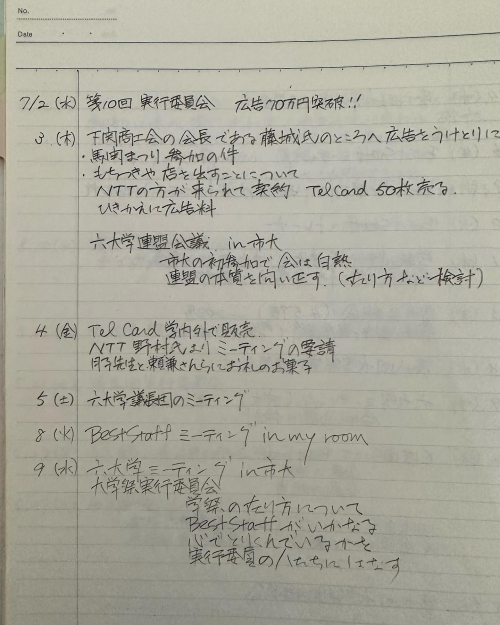 No.
Date
7/2 (水) 第10回 実行委員会 広告70万円突破!!
3 (木) 下関商工会の会長である藤城氏のところへ広告をうけとりに
・馬関まつり参加の件
・もちつきや店を出すことについて
NTTの方が来られて契約 TelCard 50枚売る.
ひきかえに広告料
六大学連盟会議 in 市大
市大の初参加で会は白熱
連盟の本質を問い正す.(在り方など検討)
4 (金) Tel Card 学内外で販売
NTT 野村氏よりミーティングの要請
先生と頼兼さんらにお礼のお菓子
5 (土) 六大学議長団のミーティング
8 (火) BestStaff ミーティング in my room
9 (水) 六大学ミーティング in 市大
大学祭実行委員会
学祭の在り方について
BestStaff がいかなる
心でとりくんでいるかを
実行委員の人たちにはなす